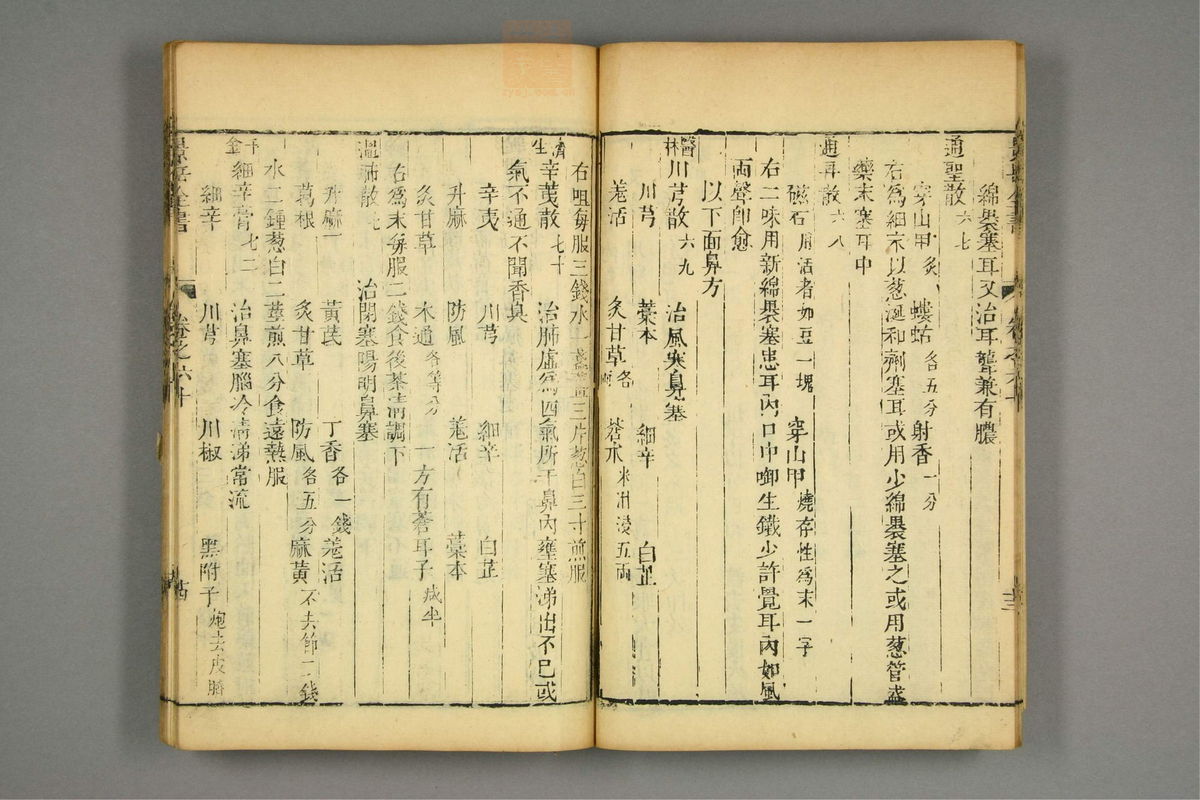 綿裹塞耳又治耳聾兼有膿
通聖散六七
穿山甲炙 螻蛄各五分 射香一分
右爲細末以葱涎和劑塞耳或用少綿裹塞之或用葱管盛
藥末塞耳中
通耳散六八
磁石用活者如豆一塊 穿山甲燒存性爲末一字
右二味用新綿裹塞患耳內口中啣生鐵少許覺耳內如風
雨聲卽愈
以下面鼻方
醫林川芎散六九 治風寒鼻塞
川芎 藁本 細辛 白芷
羌活 炙甘草各一兩 蒼朮米泔浸五兩
右咀每服三錢水一盞薑三片葱白三寸煎服
濟生辛夷散七十 治肺虛爲四氣所干鼻內壅塞涕出不已或
氣不通不聞香臭
辛夷 川芎 細辛 白芷
升麻 防風 羌活 藁本
炙甘草 木通各等分 一方有蒼耳子减半
右爲末每服二錢食後茶淸調下
溫肺散七一 治閉塞陽明鼻塞
升麻 黃芪 丁香各一錢 羌活
葛根 炙甘草 防風各五分 麻黃不去節二錢
水二鍾葱白二莖煎八分食遠熱服
千金細辛膏七二 治鼻塞腦冷淸涕常流
細辛 川芎 川椒 黑附子炮去皮臍
景岳全書 卷之六十